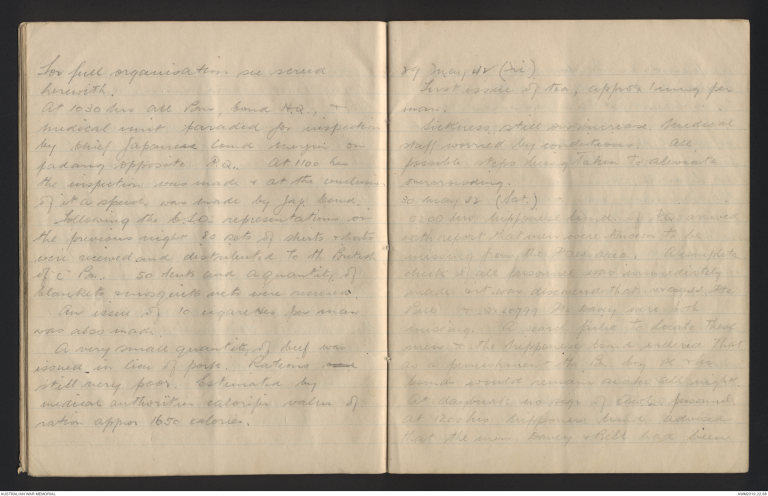 For full organisation see screed
herewith.
At 1030 hrs all Bns, Comd H.Q., +
medical unit paraded for inspection
by Chief Japanese Comd on
padang opposite H.Q. At 1100 hrs
the inspection was made + at the conclusion
of it a speech was made by Jap. Comd.
Following the representations on
the previous night 80 sets of shirts + shorts
were received and distributed to the British
of "C" Bn. 50 tents and a quantity of
blankets + mosquito nets were received.
An issue of 10 cigarettes per man
was also made.
A very small quantity of beef was
issued in lieu of pork. Rations
still very poor. Estimated by
medical authorities calorific value of
ration approx 1650 calories.
29 May 42 (Fri)
First issue of tea, approx per
man.
Sickness still on increase. Medical
staff worried by conditions. All
possible steps being taken to alleviate
overcrowding.
30 May 42 (Sat.)
Nipponese arrived
with report that men were known to be
missing from the area. A complete
check of all personnel was immediately
made + it was discovered that
Bell + Pte Davey were both
missing. A search failed to locate these
men + the Nipponese Comd ordered that
as a punishment the Bn
would remain all night.
At daybreak no sign of personnel
At hrs Nipponese Comd advised
that the men, Davey + Bell had been
AUSTRALIAN WAR MEMORIAL